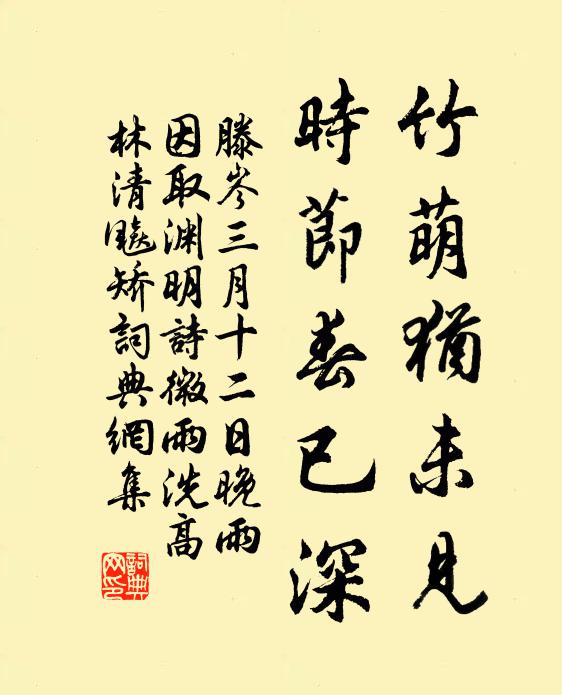 竹萌猶未見
時節春已深
滕岑三月十二日晚雨
因取渊明詩微雨洗高
林清飈矫詞典網集
詞典
网印